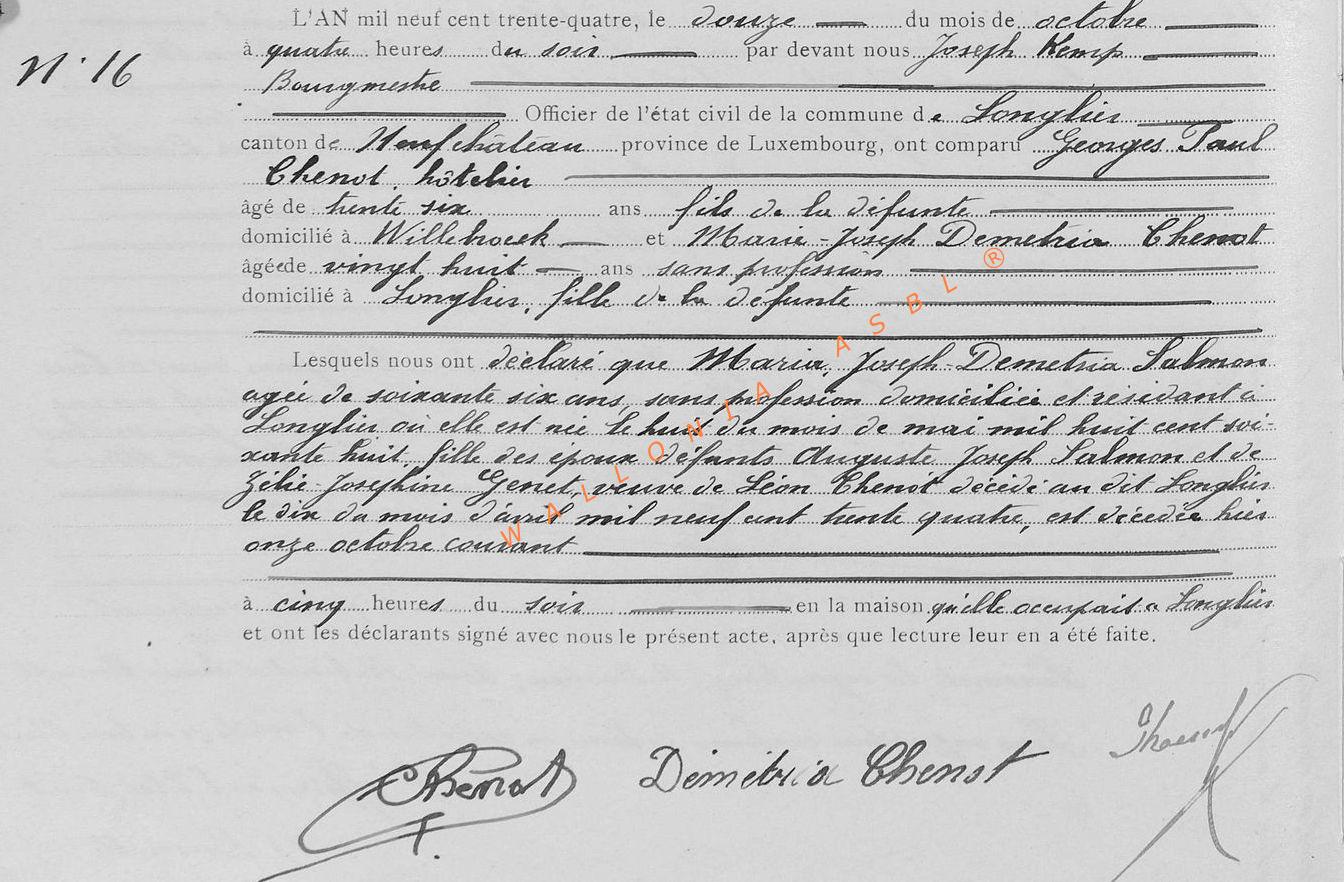 L'AN mil neuf cent trente-quatre, le douze du mois de octobre
N° 16
à quatre heures du soir par devant nous Joseph Kemp
Bourgmestre
Officier de l'état civil de la commune de Longlier
canton de Neufchâteau province de Luxembourg, ont comparu Georges Paul
Chenot, hôtelier
âgé de trente six ans fils de la défunte
domicilié à Willebroeck et Marie-Joseph Demetria Chenot
âgée de vingt huit ans sans profession
domicilié à Longlier, fille de la défunte
Lesquels nous ont déclaré que Maria, Joseph-Demetria Salmon
agée de soixante six ans, sans profession domiciliée et résidant à
Longlier où elle est née le huit du mois de mai mil huit cent soi-
xante huit, fille des epoux défunts Auguste Joseph Salmon et de
Zélie-Josephine Genet, veuve de Léon Chenot décédé au dit Longlier
le dix du mois d'avril mil neuf cent trente quatre, est décédée hier
onze octobre courant
à cinq heures du soir en la maison qu'elle occupait à Longlier
et ont les déclarants signé avec nous le présent acte, après que lecture leur en a été faite.
Chenot Démétria Chenot
WALLONIA ASBL ®